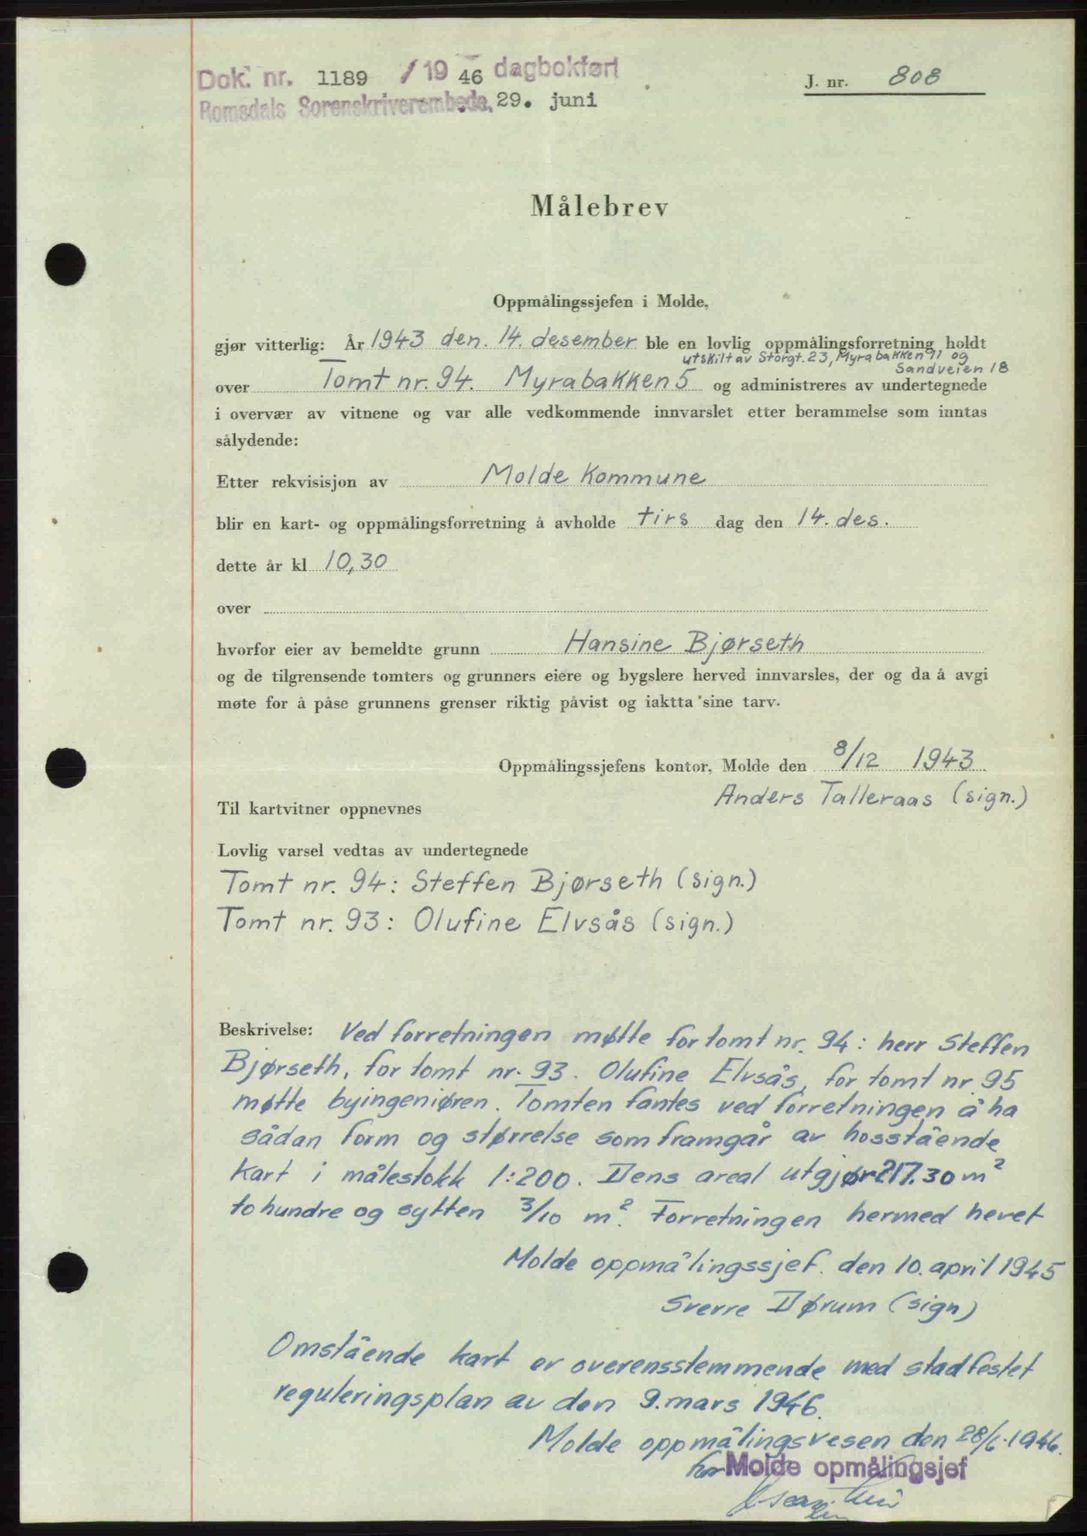 Dok. nr. 1189 / 19 46 dagbokført
Romsdals Sorenskriverembede, 29. juni
J. nr. 808
Målebrev
Oppmålingssjefen i Molde,
gjør vitterlig: År 1943 den. 14. desember ble en lovlig oppmålingsforretning holdt
utskilt av Storgt. 23, Myrabakken 11 og
Sandveien 18
over Tomt nr. 94. Myrabakken 5 og administreres av undertegnede
i overvær av vitnene og var alle vedkommende innvarslet etter berammelse som inntas
sålydende:
Etter rekvisisjon av Molde Kommune
blir en kart- og oppmålingsforretning å avholde tirs dag den 14. des.
dette år kl 10,30
over
hvorfor eier av bemeldte grunn Hansine Bjørseth
og de tilgrensende tomters og grunners eiere og bygslere herved innvarsles, der og da å avgi
møte for å påse grunnens grenser riktig påvist og iaktta sine tarv.
Oppmålingssjefens kontor, Molde den 8/12 1943
Anders Talleraas (sign.)
Til kartvitner oppnevnes
Lovlig varsel vedtas av undertegnede
Tomt nr. 94: Steffen Bjørseth (sign.)
Tomt nr. 93: Olufine Elvsås (sign.)
Beskrivelse: Ved forretningen møtte for tomt nr. 94: herr Steffen
Bjørseth, for tomt nr. 93. Olufine Elvsås, for tomt nr 95
møtte byingeniøren. Tomten fantes ved forretningen å ha
sådan form og størrelse som framgår av hosstående
kart i målestokk 1:200. Dens areal utgjør 217.30 m²
tohundre og sytten 3/10 m². Forretningen hermed hevet
Molde oppmålingssjef. den 10. april 1945
Sverre Dørum (sign)
Omstående kart er overensstemmende med stadfestet
reguleringsplan av den 9. mars 1946.
Molde oppmålingsvesen den 28/6-1946.
for Molde opmålingsjef